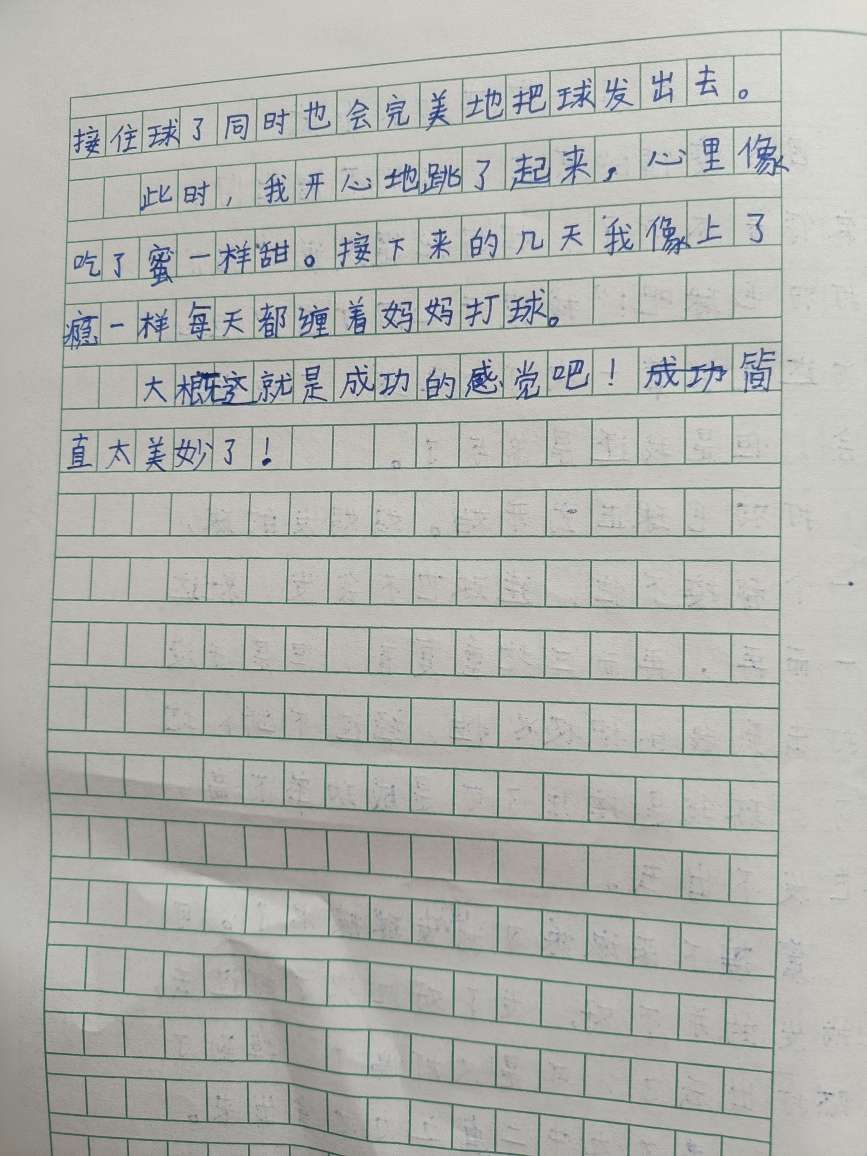 接住球了同时也会完美地把球发出去。
此时，我开心地跳了起来，心里像
吃了蜜一样甜。接下来的几天我像上了
瘾一样每天都缠着妈妈打球。
大概这就是成功的感觉吧！成功简
直太美妙了！